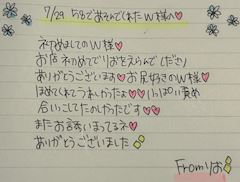 7/29 ちるであそんでくれたW様へ♡
初めましてのW様♡
お店初めてでりおをえらんでくださり
ありがとうございます♡お尻好きのW様♡
ほめてくれてうれしかったよ♡いっぱい責め
合いっこしてたのしかったです♡♡
またお誘いまってるネ♡
ありがとうございました
Fromりお